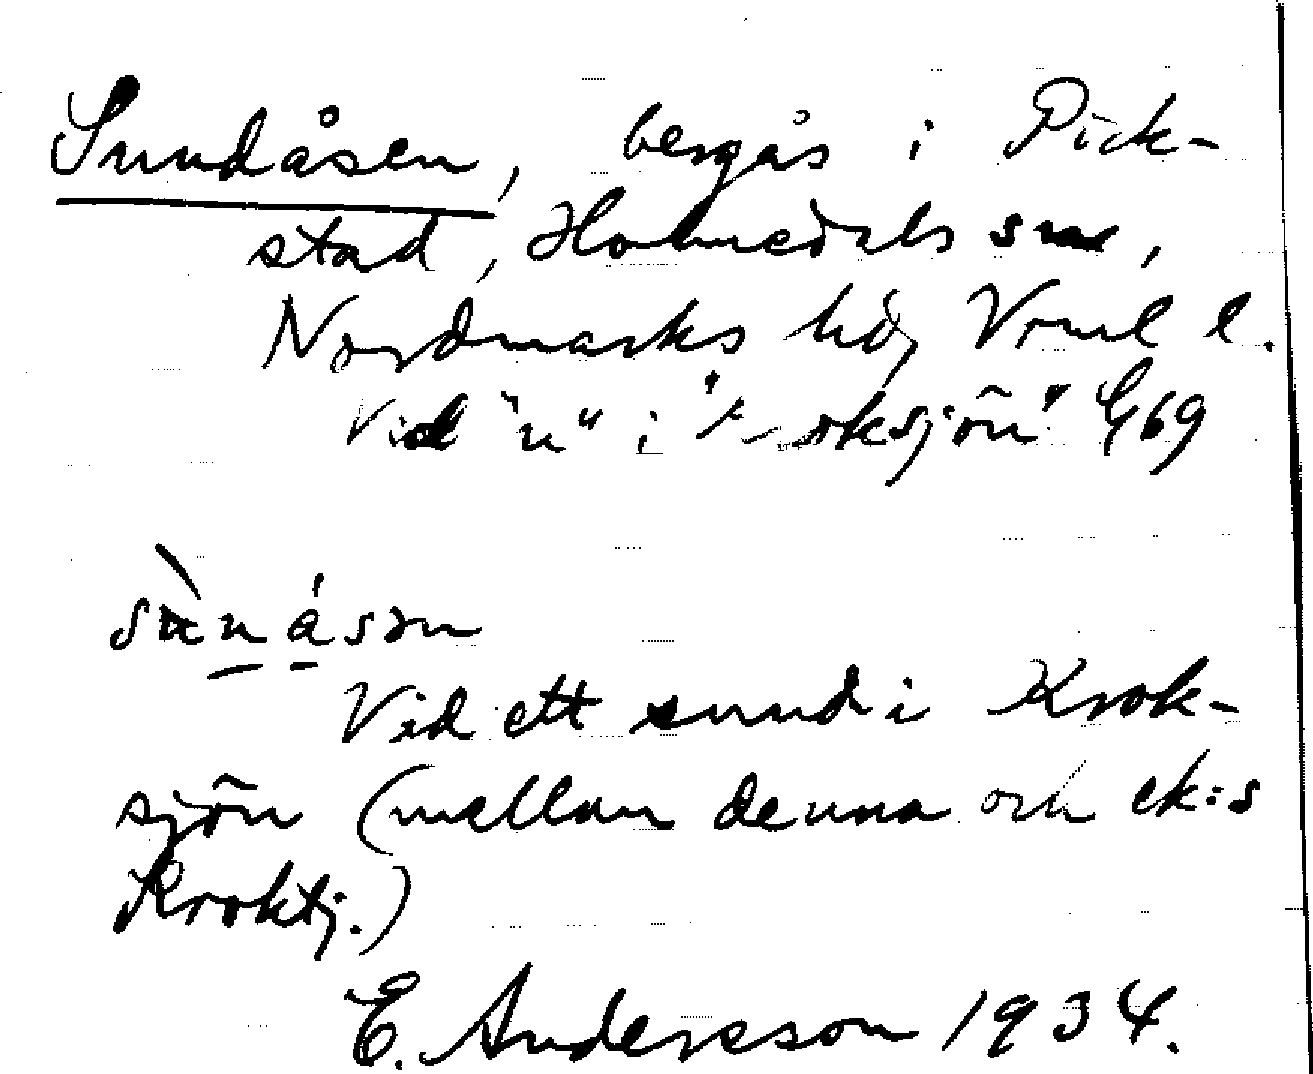 Sundåsen, bergås i Pick-
stad, Holmedals sn,
Nordmarks hd, Vrml l.
Vid "n" i "Kroksjön" G69
sùnásən
Vid ett sund i Krok-
sjön (mellan denna och ek:s
Kroktj.)
E. Andersson 1934.